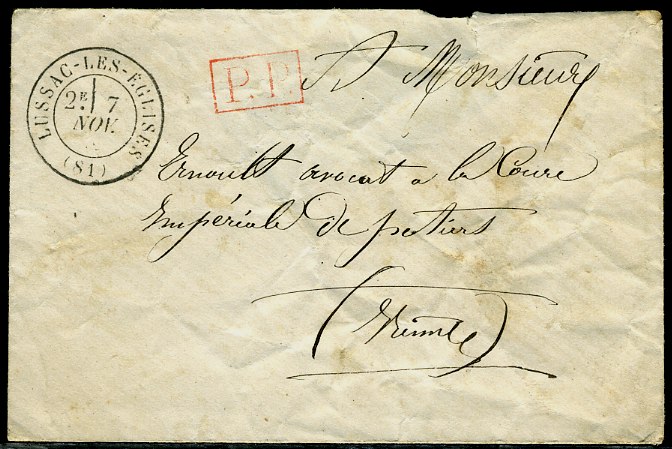 LUSSAC-LES-EGLISES
2E 7
NOV.
(81)
P.P.
A Monsieur
Ernoult avocat a la Coure
Impériale de potiers
(Vienne)